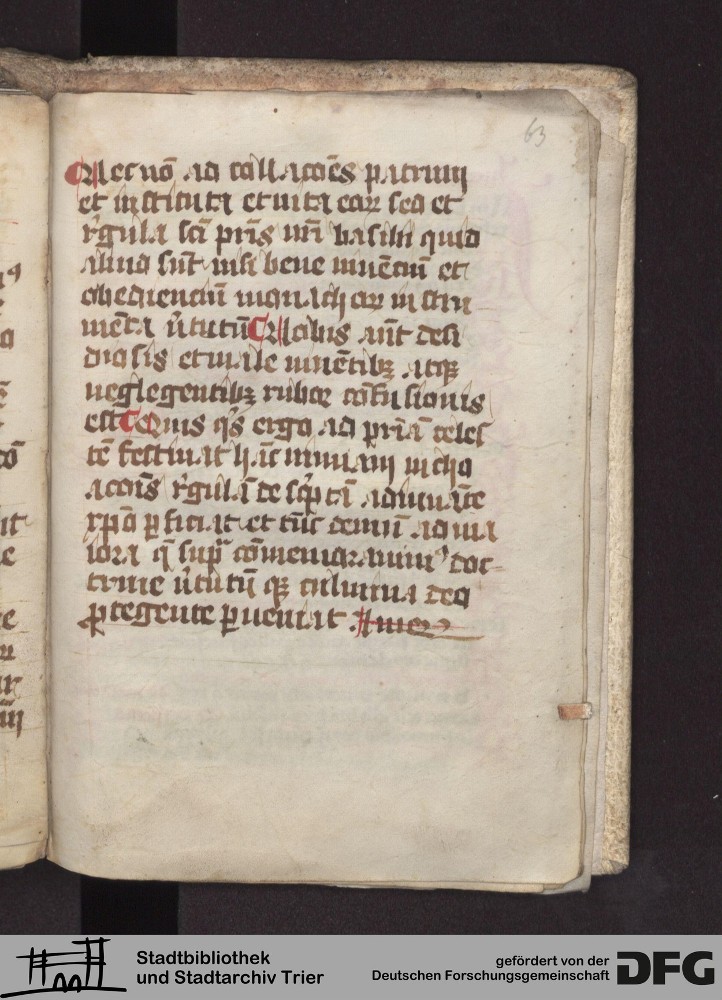 63
Nec nō ad collacōēs patrum
et instituta et uita eoꝝ sed et
rᵉgula sc̄i pr̄is nr̄i basilii quid
aliud sūt nisi bene uiuēciū et
obedienciū monachoꝝ instru
mēta u̇tutū Nobis aūt desi
diosis et male uiuētibꝫ atqꝫ
neglegentibꝫ rubor cōfusionis
est Quis qͥs ergo ad pr̄iā celes
tē festinat hāc minimam incho
acōis rᵉgulā descͥptā adiuuāte
xp̄o ꝑficiat et tūc demū ad ma
iora q̄ supͣ cōmemorauimꝰ doc
trine u̇tutū qꝫ culmina deo
ꝓtegente ꝑueniat Amen
Stadtbibliothek
und Stadtarchiv Trier
gefördert von der
Deutschen Forschungsgemeinschaft
DFG